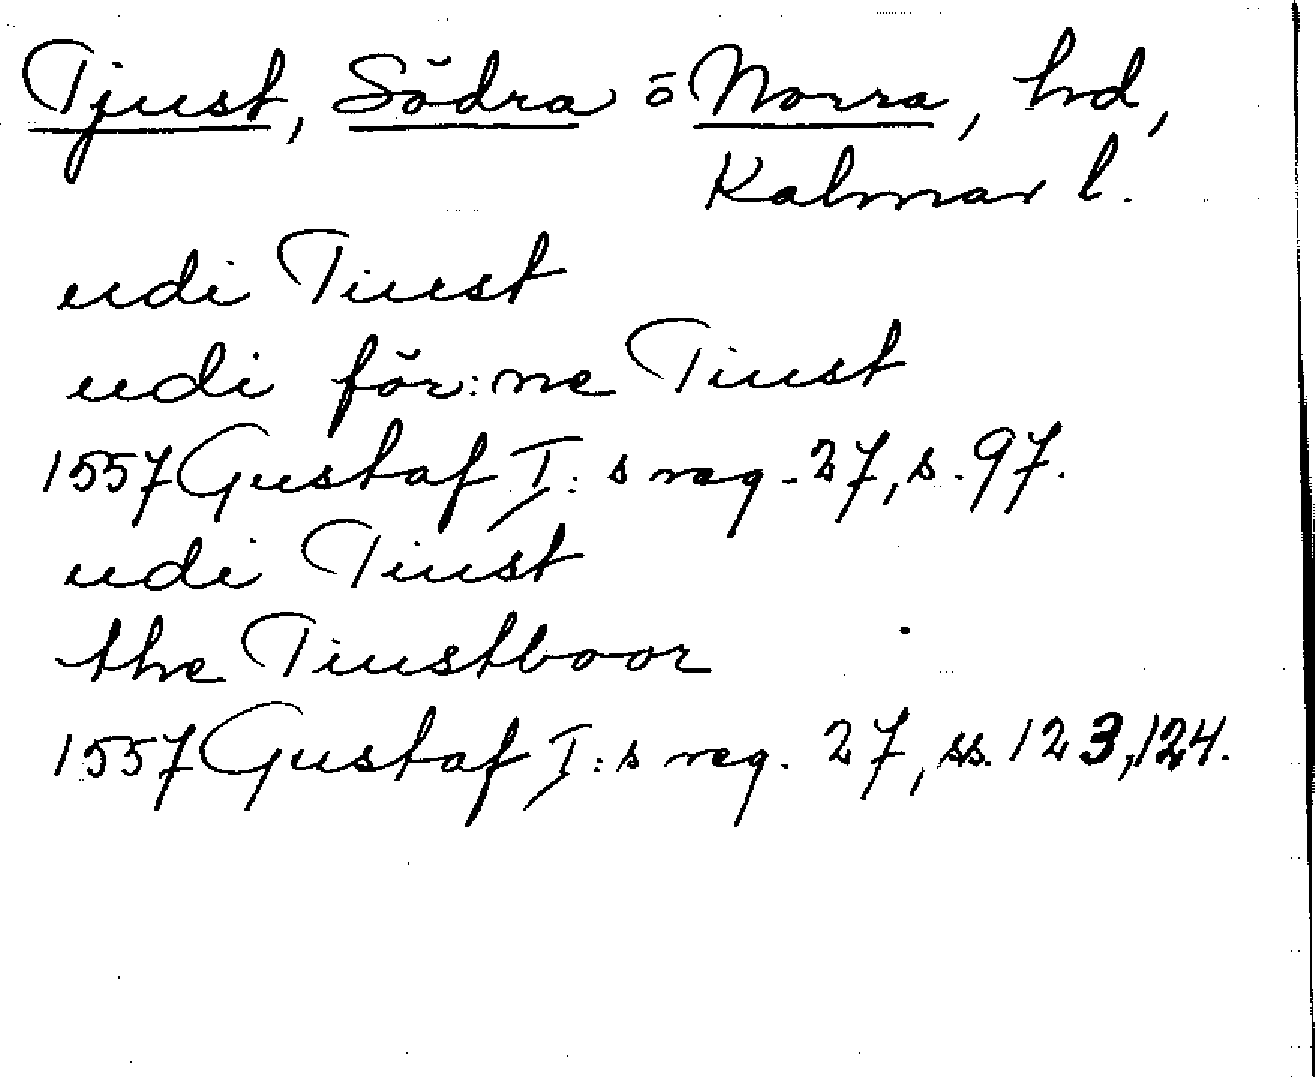 Tjust, Södra o Norra, hd,
Kalmar l.
udi Tiust
udi för:ne Tiust
1557 Gustaf I:s reg. 27, s. 97.
udi Tiust
the Tiustboor
1557 Gustaf I:s reg. 27, ss. 123, 124.